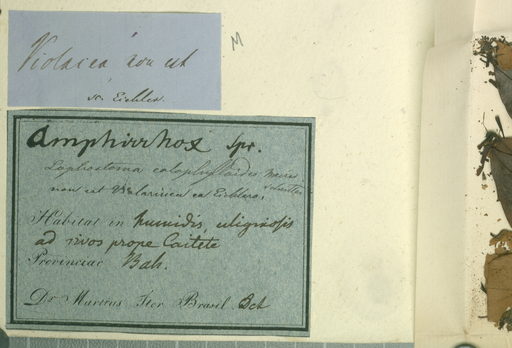 Violacea non est
sec. Eichler.
M
Amphirrhox Spr.
Lophostoma calophylloides Meissn
non est Violarinea ex Eichlero.
Habitat in humidis, uliginosis
ad rivos prope Caitete
Provinciae Bah.
Dr Martius Iter Brasil. Bot